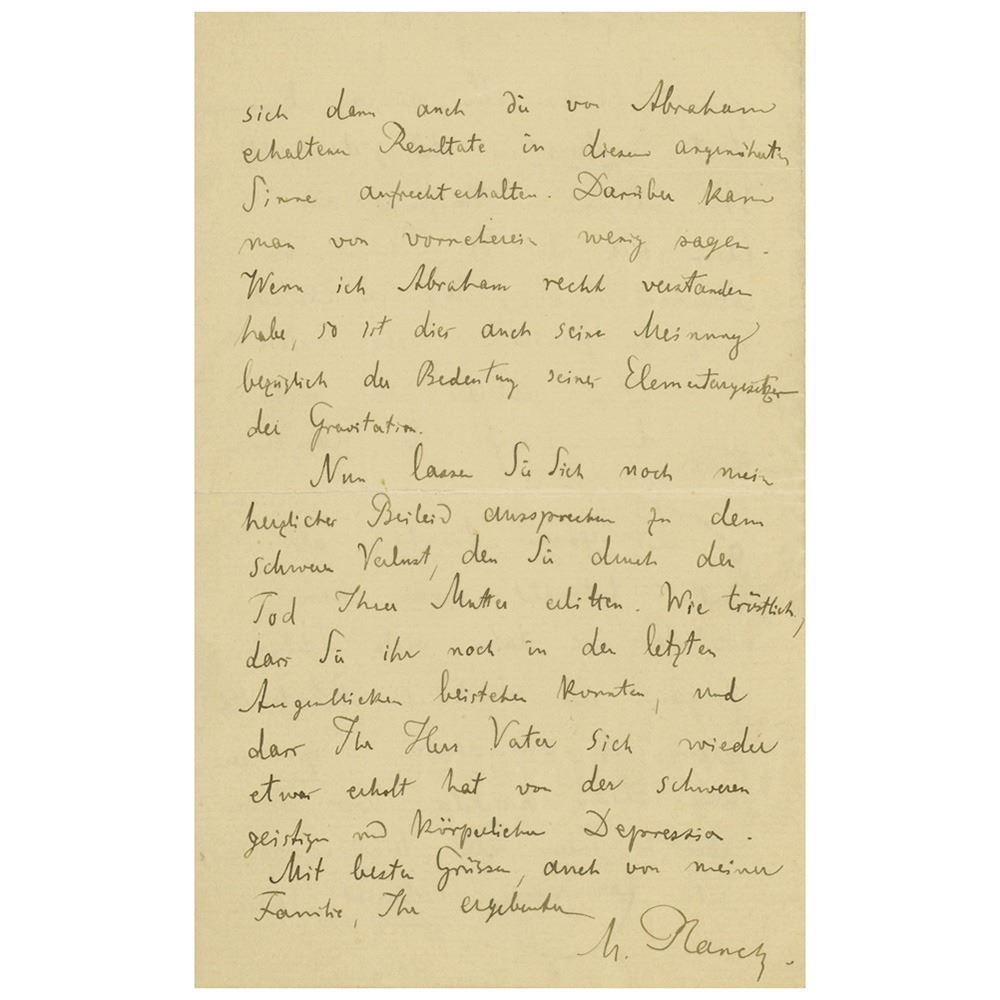 sich dann auch die von Abraham
erhaltenen Resultate in diesem angenäherten
Sinne aufrecht erhalten. Darüber kann
man von vorneherein wenig sagen.
Wenn ich Abraham recht verstanden
habe, so ist dies auch seine Meinung
bezüglich der Bedeutung seines Elementargesetzes
der Gravitation.
Nun lassen Sie Sich noch mein
herzliches Beileid aussprechen zu dem
schweren Verlust, den Sie durch den
Tod Ihrer Mutter erlitten. Wie tröstlich,
dass Sie ihr noch in den letzten
Augenblicken beistehen konnten, und
dass Ihr Herr Vater sich wieder
etwas erholt hat von der schweren
geistigen und körperlichen Depression.
Mit besten Grüssen, auch von meiner
Familie, Ihr ergebenster
M. Planck.